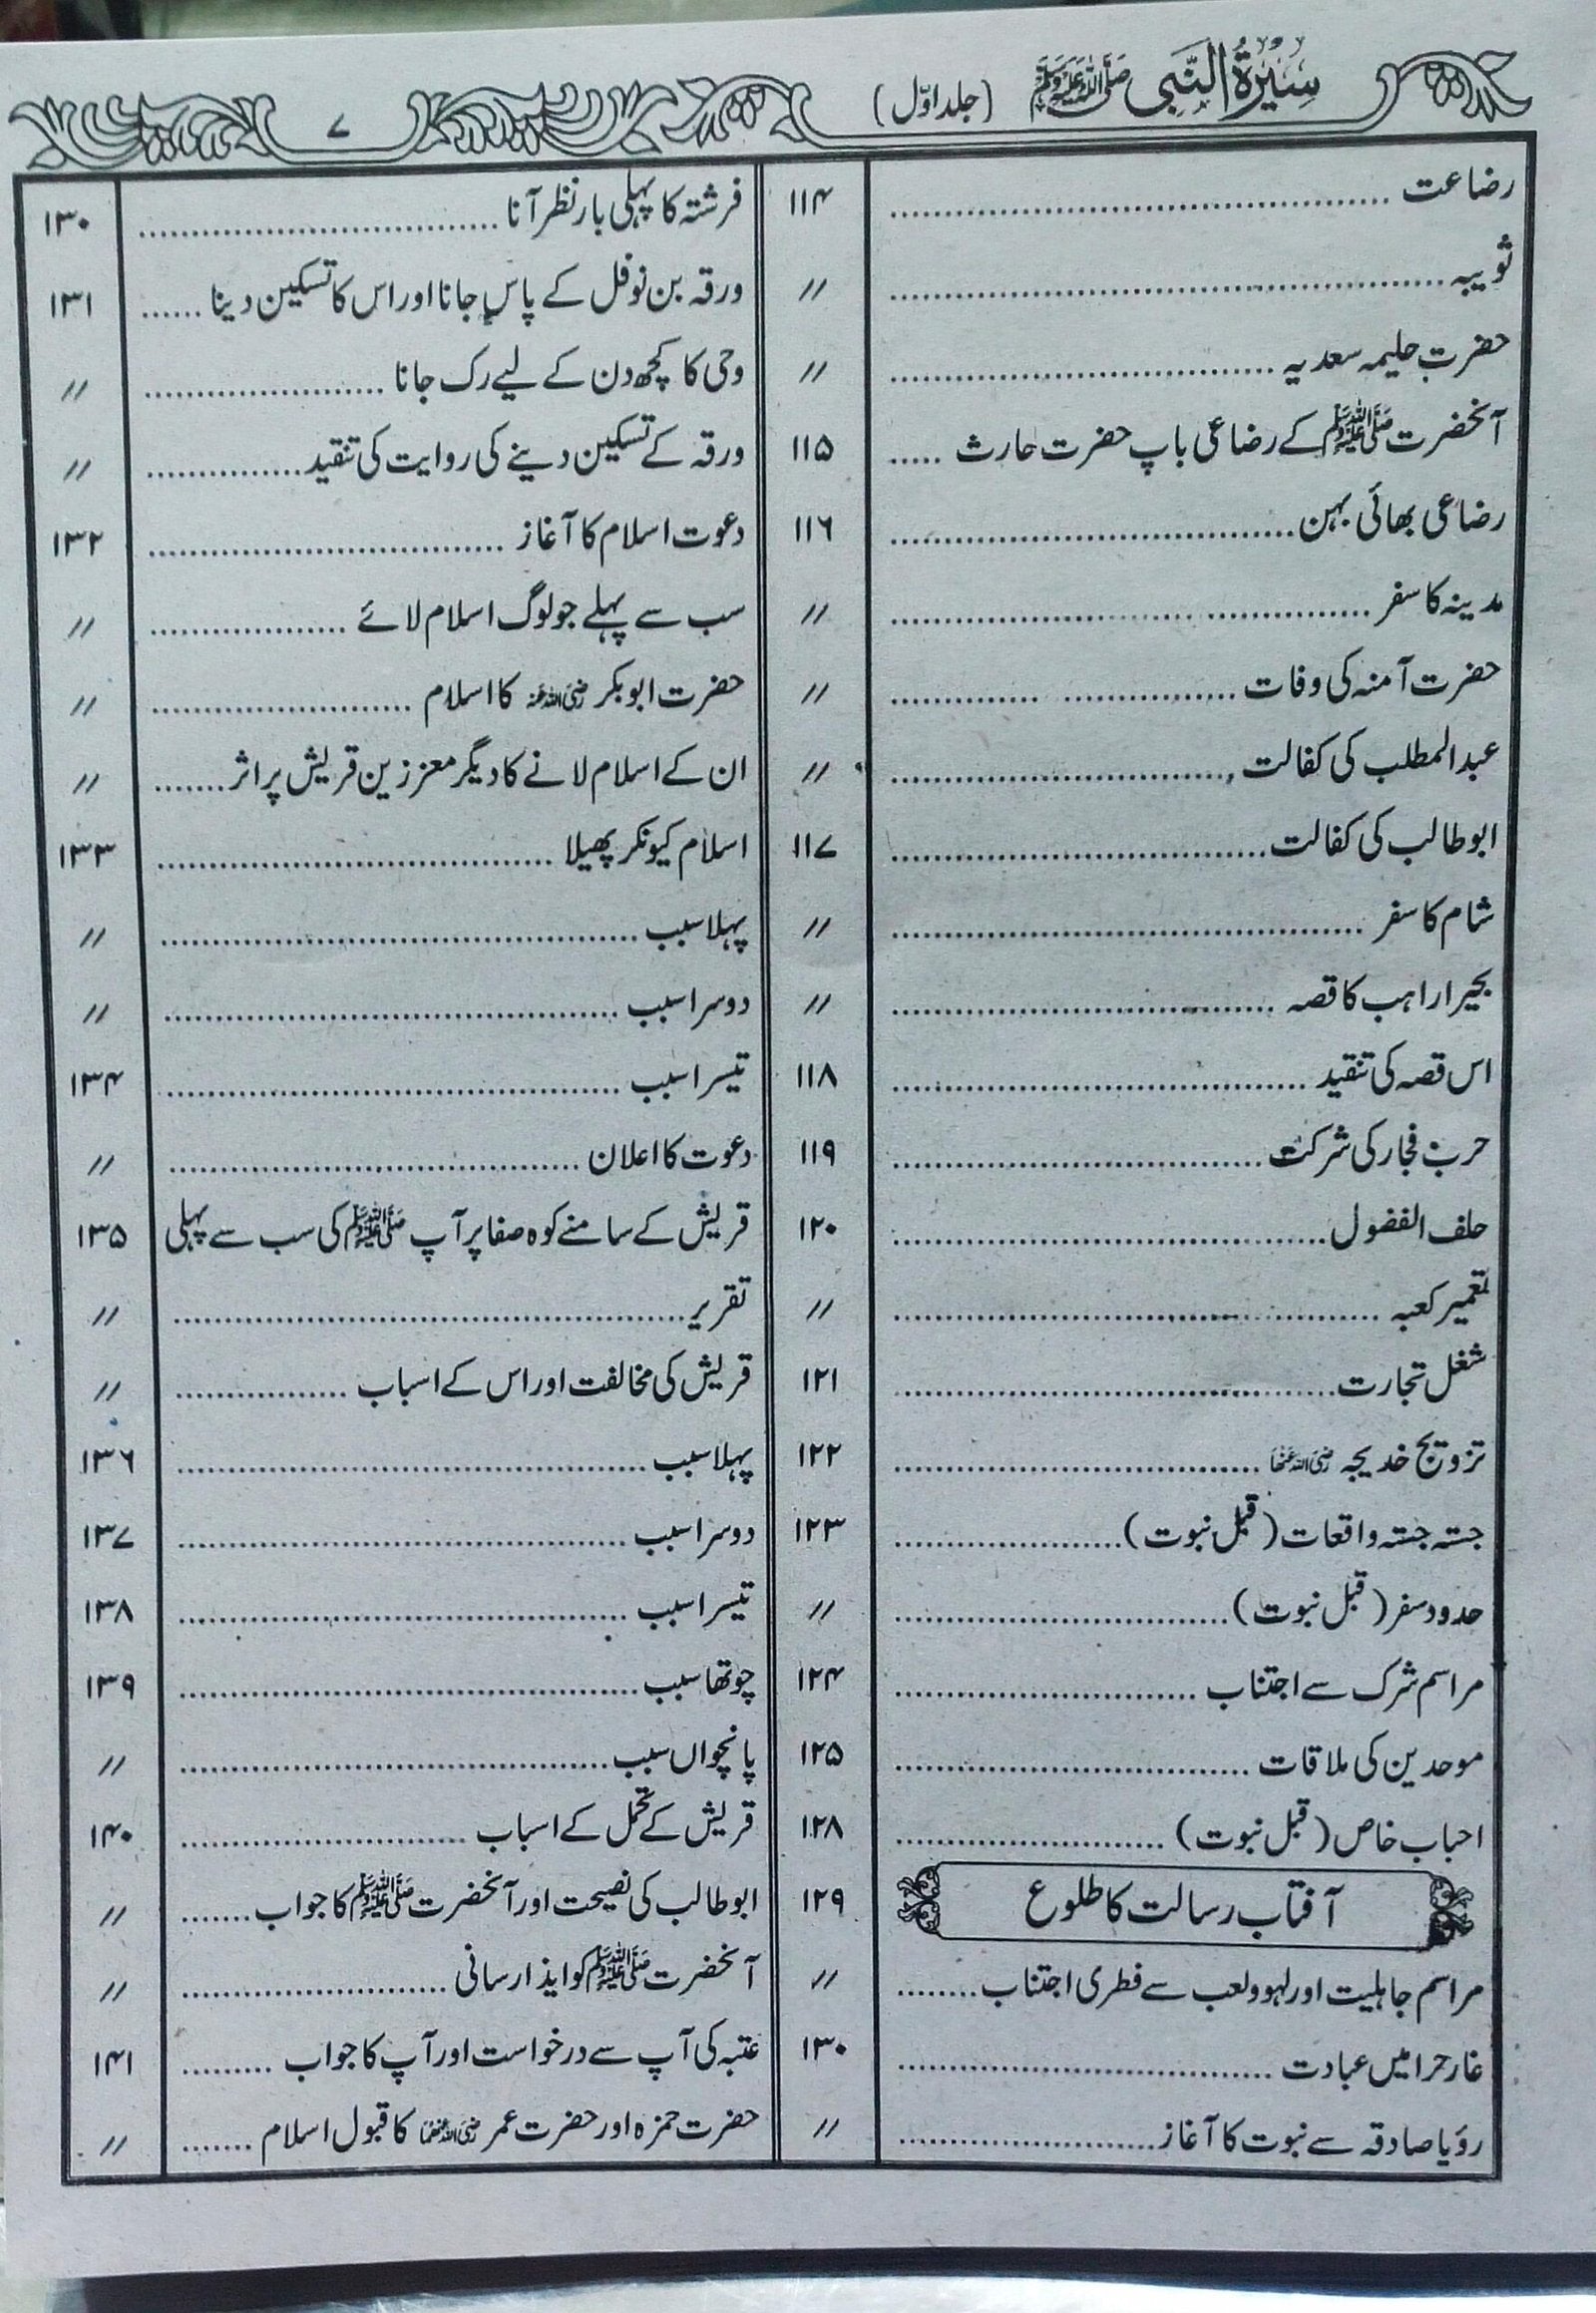 سیرۃ النبی ﷺ (جلد اول) ۷
رضاعت ۱۱۴
ثویبہ //
حضرت حلیمہ سعدیہ //
آنحضرت ﷺ کے رضاعی باپ حضرت حارث ۱۱۵
رضاعی بھائی بہن ۱۱۶
مدینہ کا سفر //
حضرت آمنہ کی وفات //
عبدالمطلب کی کفالت //
ابوطالب کی کفالت ۱۱۷
شام کا سفر //
بحیرا راہب کا قصہ //
اس قصہ کی تنقید ۱۱۸
حرب فجار کی شرکت ۱۱۹
حلف الفضول ۱۲۰
تعمیر کعبہ //
شغل تجارت ۱۲۱
تزویج خدیجہ رضی اللہ عنہا ۱۲۲
جستہ جستہ واقعات (قبل نبوت) ۱۲۳
حدود سفر (قبل نبوت) //
مراسم شرک سے اجتناب ۱۲۴
موحدین کی ملاقات ۱۲۵
احباب خاص (قبل نبوت) ۱۲۸
آفتاب رسالت کا طلوع ۱۲۹
مراسم جاہلیت اور لہو و لعب سے فطری اجتناب //
غار حرا میں عبادت ۱۳۰
رؤیا صادقہ سے نبوت کا آغاز //
فرشتہ کا پہلی بار نظر آنا ۱۳۰
ورقہ بن نوفل کے پاس جانا اور اس کا تسکین دینا ۱۳۱
وحی کا کچھ دن کے لیے رک جانا //
ورقہ کے تسکین دینے کی روایت کی تنقید //
دعوت اسلام کا آغاز ۱۳۲
سب سے پہلے جو لوگ اسلام لائے //
حضرت ابوبکر رضی اللہ عنہ کا اسلام //
ان کے اسلام لانے کا دیگر معززین قریش پر اثر //
اسلام کیونکر پھیلا ۱۳۳
پہلا سبب //
دوسرا سبب //
تیسرا سبب ۱۳۴
دعوت کا اعلان //
قریش کے سامنے کوہ صفا پر آپ ﷺ کی سب سے پہلی ۱۳۵
تقریر //
قریش کی مخالفت اور اس کے اسباب //
پہلا سبب ۱۳۶
دوسرا سبب ۱۳۷
تیسرا سبب ۱۳۸
چوتھا سبب ۱۳۹
پانچواں سبب //
قریش کے تحمل کے اسباب ۱۴۰
ابوطالب کی نصیحت اور آنحضرت ﷺ کا جواب //
آنحضرت ﷺ کو ایذا رسانی //
عتبہ کی آپ سے درخواست اور آپ کا جواب ۱۴۱
حضرت حمزہ اور حضرت عمر رضی اللہ عنہما کا قبول اسلام //